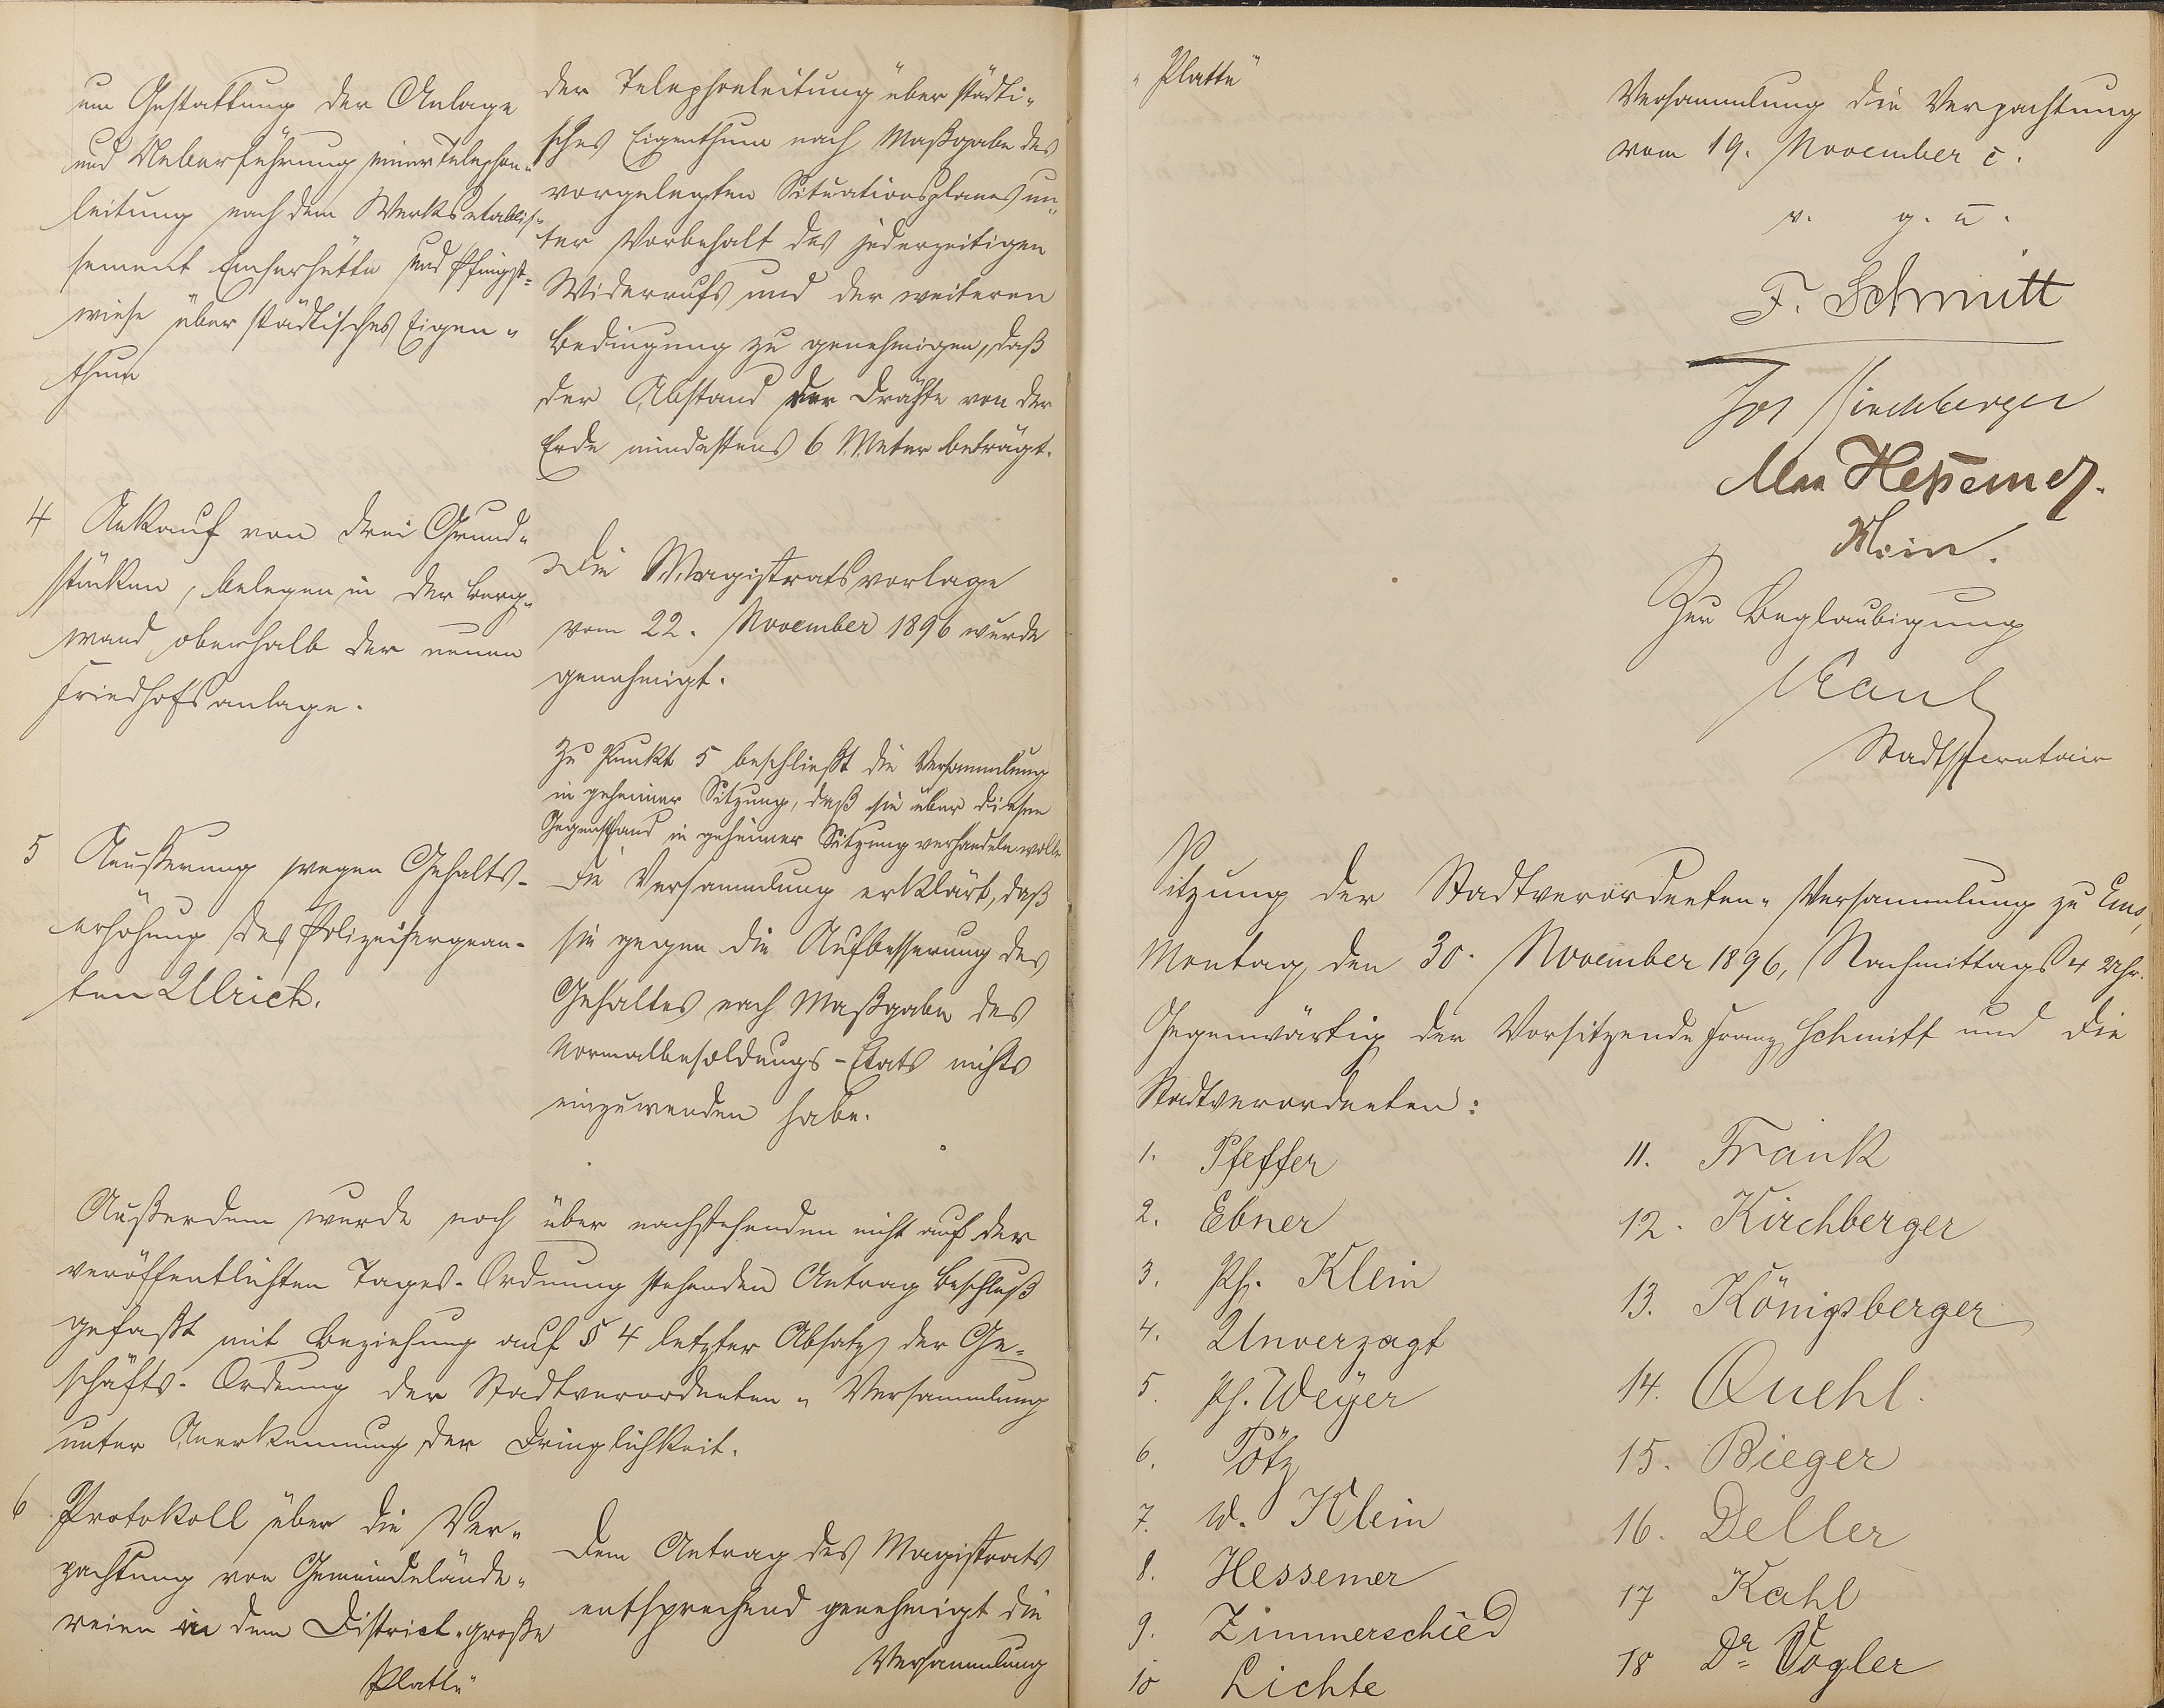 um Gestattung der Anlage
und Ueberführung einer Telephon-
leitung nach dem Werksetablis-
sement Emserhütte und Pfingst-
wiese über städtisches Eigen-
thum
der Telephonleitung über städti-
sches Eigenthum nach Maßgabe des
vorgelegten Situationsplanes un-
ter Vorbehalt des jederzeitigen
Widerrufs und der weiteren
Bedingung zu genehmigen, daß
der Abstand der Drähte von der
Erde mindestens 6 Meter beträgt.
4 Ankauf von drei Grund-
stücken, belegen in der Berg-
wand oberhalb der neuen
Friedhofsanlage.
Die Magistratsvorlage
vom 22. November 1896 wurde
genehmigt.
Zu Punkt 5 beschließt die Versammlung
in geheimer Sitzung, daß sie über diesen
Gegenstand in geheimer Sitzung verhandeln wolle
5 Aeußerung wegen Gehalts-
erhöhung des Polizeisergean-
ten Ulrich.
Die Versammlung erklärt, daß
sie gegen die Aufbesserung des
Gehaltes nach Maßgabe des
Normalbesoldungs-Etats nichts
einzuwenden habe.
Außerdem wurde noch über nachstehenden nicht auf der
veröffentlichten Tages-Ordnung stehenden Antrag Beschluß
gefaßt mit Beziehung auf § 4 letzter Absatz der Ge-
schäfts-Ordnung der Stadtverordneten-Versammlung
unter Anerkennung der Dringlichkeit.
6 Protokoll über die Ver-
pachtung von Gemeindelände-
reien in dem District "große
Platte"
Dem Antrag des Magistrats
entsprechend genehmigt die
Versammlung
"Platte"
Versammlung die Verpachtung
vom 19. November c.
v. g. u.
F. Schmitt
Jos Kirchberger
Max Hessemer.
Klein.
Zur Beglaubigung
Kaul
Stadtsecretair
Sitzung der Stadtverordneten-Versammlung zu Ems,
Montag, den 30. November 1896, Nachmittags 4 Uhr.
Gegenwärtig der Vorsitzende Franz Schmitt und die
Stadtverordneten:
1. Pfeffer
2. Ebner
3. Ph. Klein
4. Unverzagt
5. Ph. Weyer
6. Pötz
7. W. Klein
8. Hessemer
9. Zimmerschied
10 Lichte
11. Frank
12. Kirchberger
13. Königsberger
14. Quehl.
15. Bieger
16. Deller
17 Kahl
18 Dr. Vogler